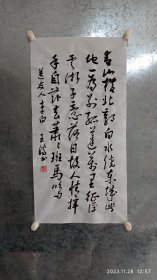 青山横北郭白水绕东城此
地一为别孤蓬万里征浮
云游子意落日故人情挥
手自兹去萧萧班马鸣
送友人李白 王
2023.11.28 12:57